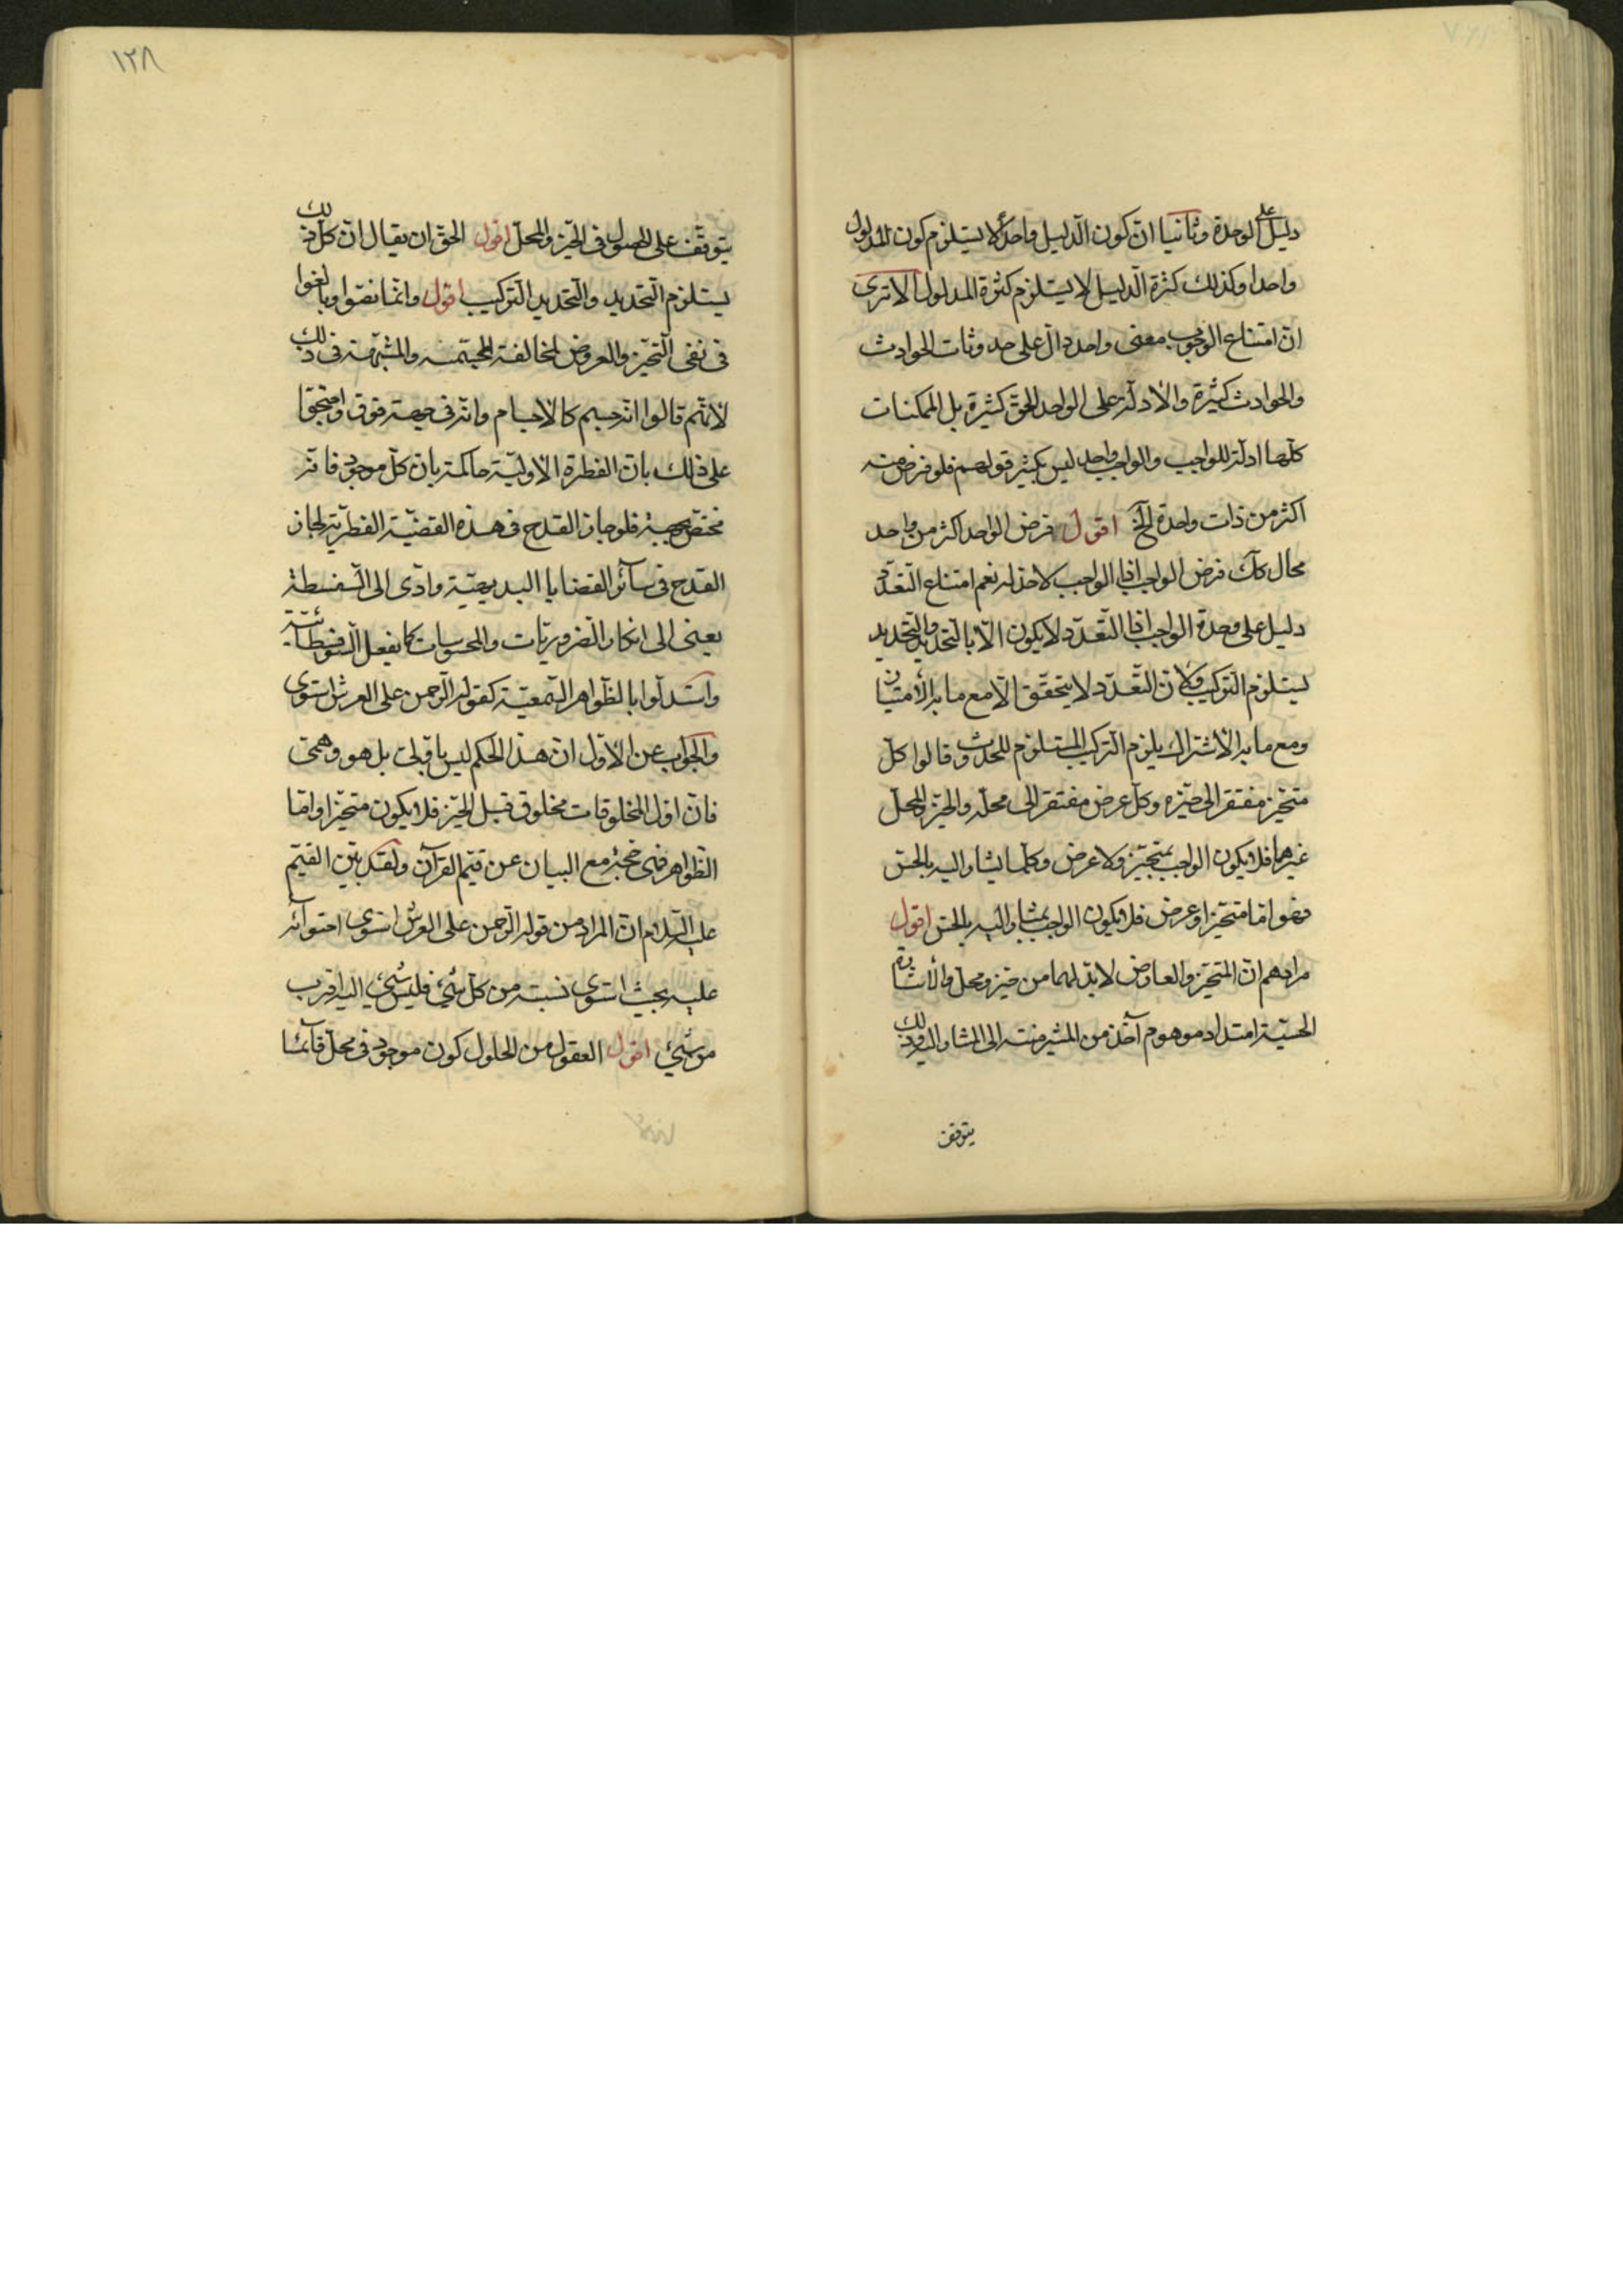 دليل على الوحدة وثانيا ان كون الدليل واحدا لا يستلزم كون المدلول
واحدا وكذلك كثرة الدليل لا يستلزم كثرة المدلول الا ترى
ان امتناع الوجوب معنى واحد دال على حدوثات الحوادث
والحوادث كثيرة والادلة على الواحد الحق كثيرة بل الممكنات
كلها ادلة للواجب والواجب واحد ليس بكثير قولهم فلو فرض منه
اكثر من ذات واحدة الخ اقول فرض الواحد اكثر من واحد
محال كك فرض الواجب اذا الواجب لا حد له نعم امتناع التعدد
دليل على وحدة الواجب اذا التعدد لا يكون الا بالتحديد والتحديد
يستلزم التركيب ولان التعدد لا يتحقق الا مع ما به الامتياز
ومع ما به الاشتراك يلزم التركيب المستلزم للحدث وقالوا كل
متحيز مفتقر الى حيزه وكل عرض مفتقر الى محله والحيز والمحل
غيرهما فلا يكون الواجب بمتحيز ولا عرض وكلما يشار اليه بالحس
فهو اما متحيز او عرض فلا يكون الواجب بمشار اليه بالحس اقول
مرادهم ان المتحيز والعارض لا بد لهما من حيز ومحل والاشارة
الحسية امتداد موهوم آخذ من المشير منته الى المشار اليه وذلك
يتوقف
١٢٨
يتوقف على الحصول في الحيز والمحل اقول الحق ان يقال ان كل ذلك
يستلزم التحديد والتحديد التركيب اقول وانما نصوا وبالغوا
في نفي التحيز والعروض لمخالفة المجسمة والمشبهة في ذلك
لانهم قالوا انه جسم كالاجسام وانه في جهة فوق واحتجوا
على ذلك بان الفطرة الاولية حاكمة بان كل موجود فانه
مختص بجهة فلو جاز القدح في هذه القضية الفطرية لجاز
القدح في سائر القضايا البديهية وادى الى السفسطة
يعني الى انكار الضروريات والمحسوسات كما يفعل السوفسطائية
واستدلوا بالظواهر السمعية كقوله الرحمن على العرش استوى
والجواب عن الاول ان هذا الحكم ليس باولى بل هو وهمي
فان اول المخلوقات مخلوق قبل الحيز فلا يكون متحيزا واما
الظواهر فهي حجة مع البيان عن قيم القرآن ولقد بين القيم
عليه السلام ان المراد من قوله الرحمن على العرش استوى احتوائه
عليه بحيث استوى نسبته من كل شيء فليس شيء اليه اقرب
من شيء اقول العقول من الحلول كون موجود في محل قائما